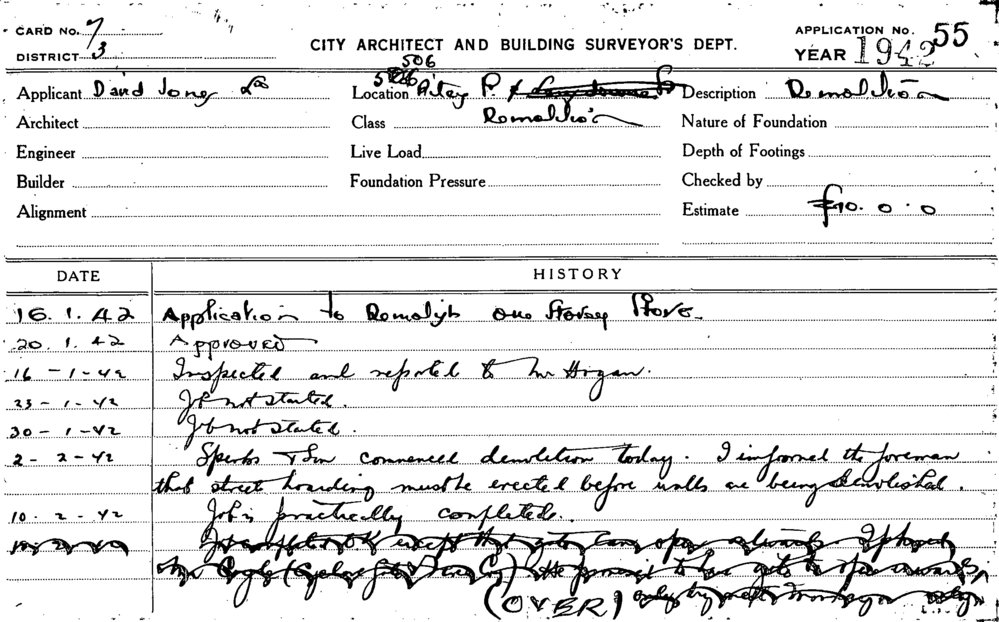 CARD No. 7
DISTRICT 3
CITY ARCHITECT AND BUILDING SURVEYOR'S DEPT.
APPLICATION No. 55
YEAR 1942
506
Applicant David Jones Ld Location Pitt P. & Description Demolition
Architect Class Demolition Nature of Foundation
Engineer Live Load Depth of Footings
Builder Foundation Pressure Checked by
Alignment Estimate £70. 0. 0
DATE HISTORY
16. 1. 42 Application to Demolish one Storey Store
20. 1. 42 Approved
16 - 1 - 42 Inspected and reported to Mr Hogan.
23 - 1 - 42 Job not started.
30 - 1 - 42 Job not started.
2 - 2 - 42 & Son commenced demolition today. I informed the foreman
that street hoarding must be erected before walls are being demolished.
10. 2. 42 Job is practically completed.
(OVER)